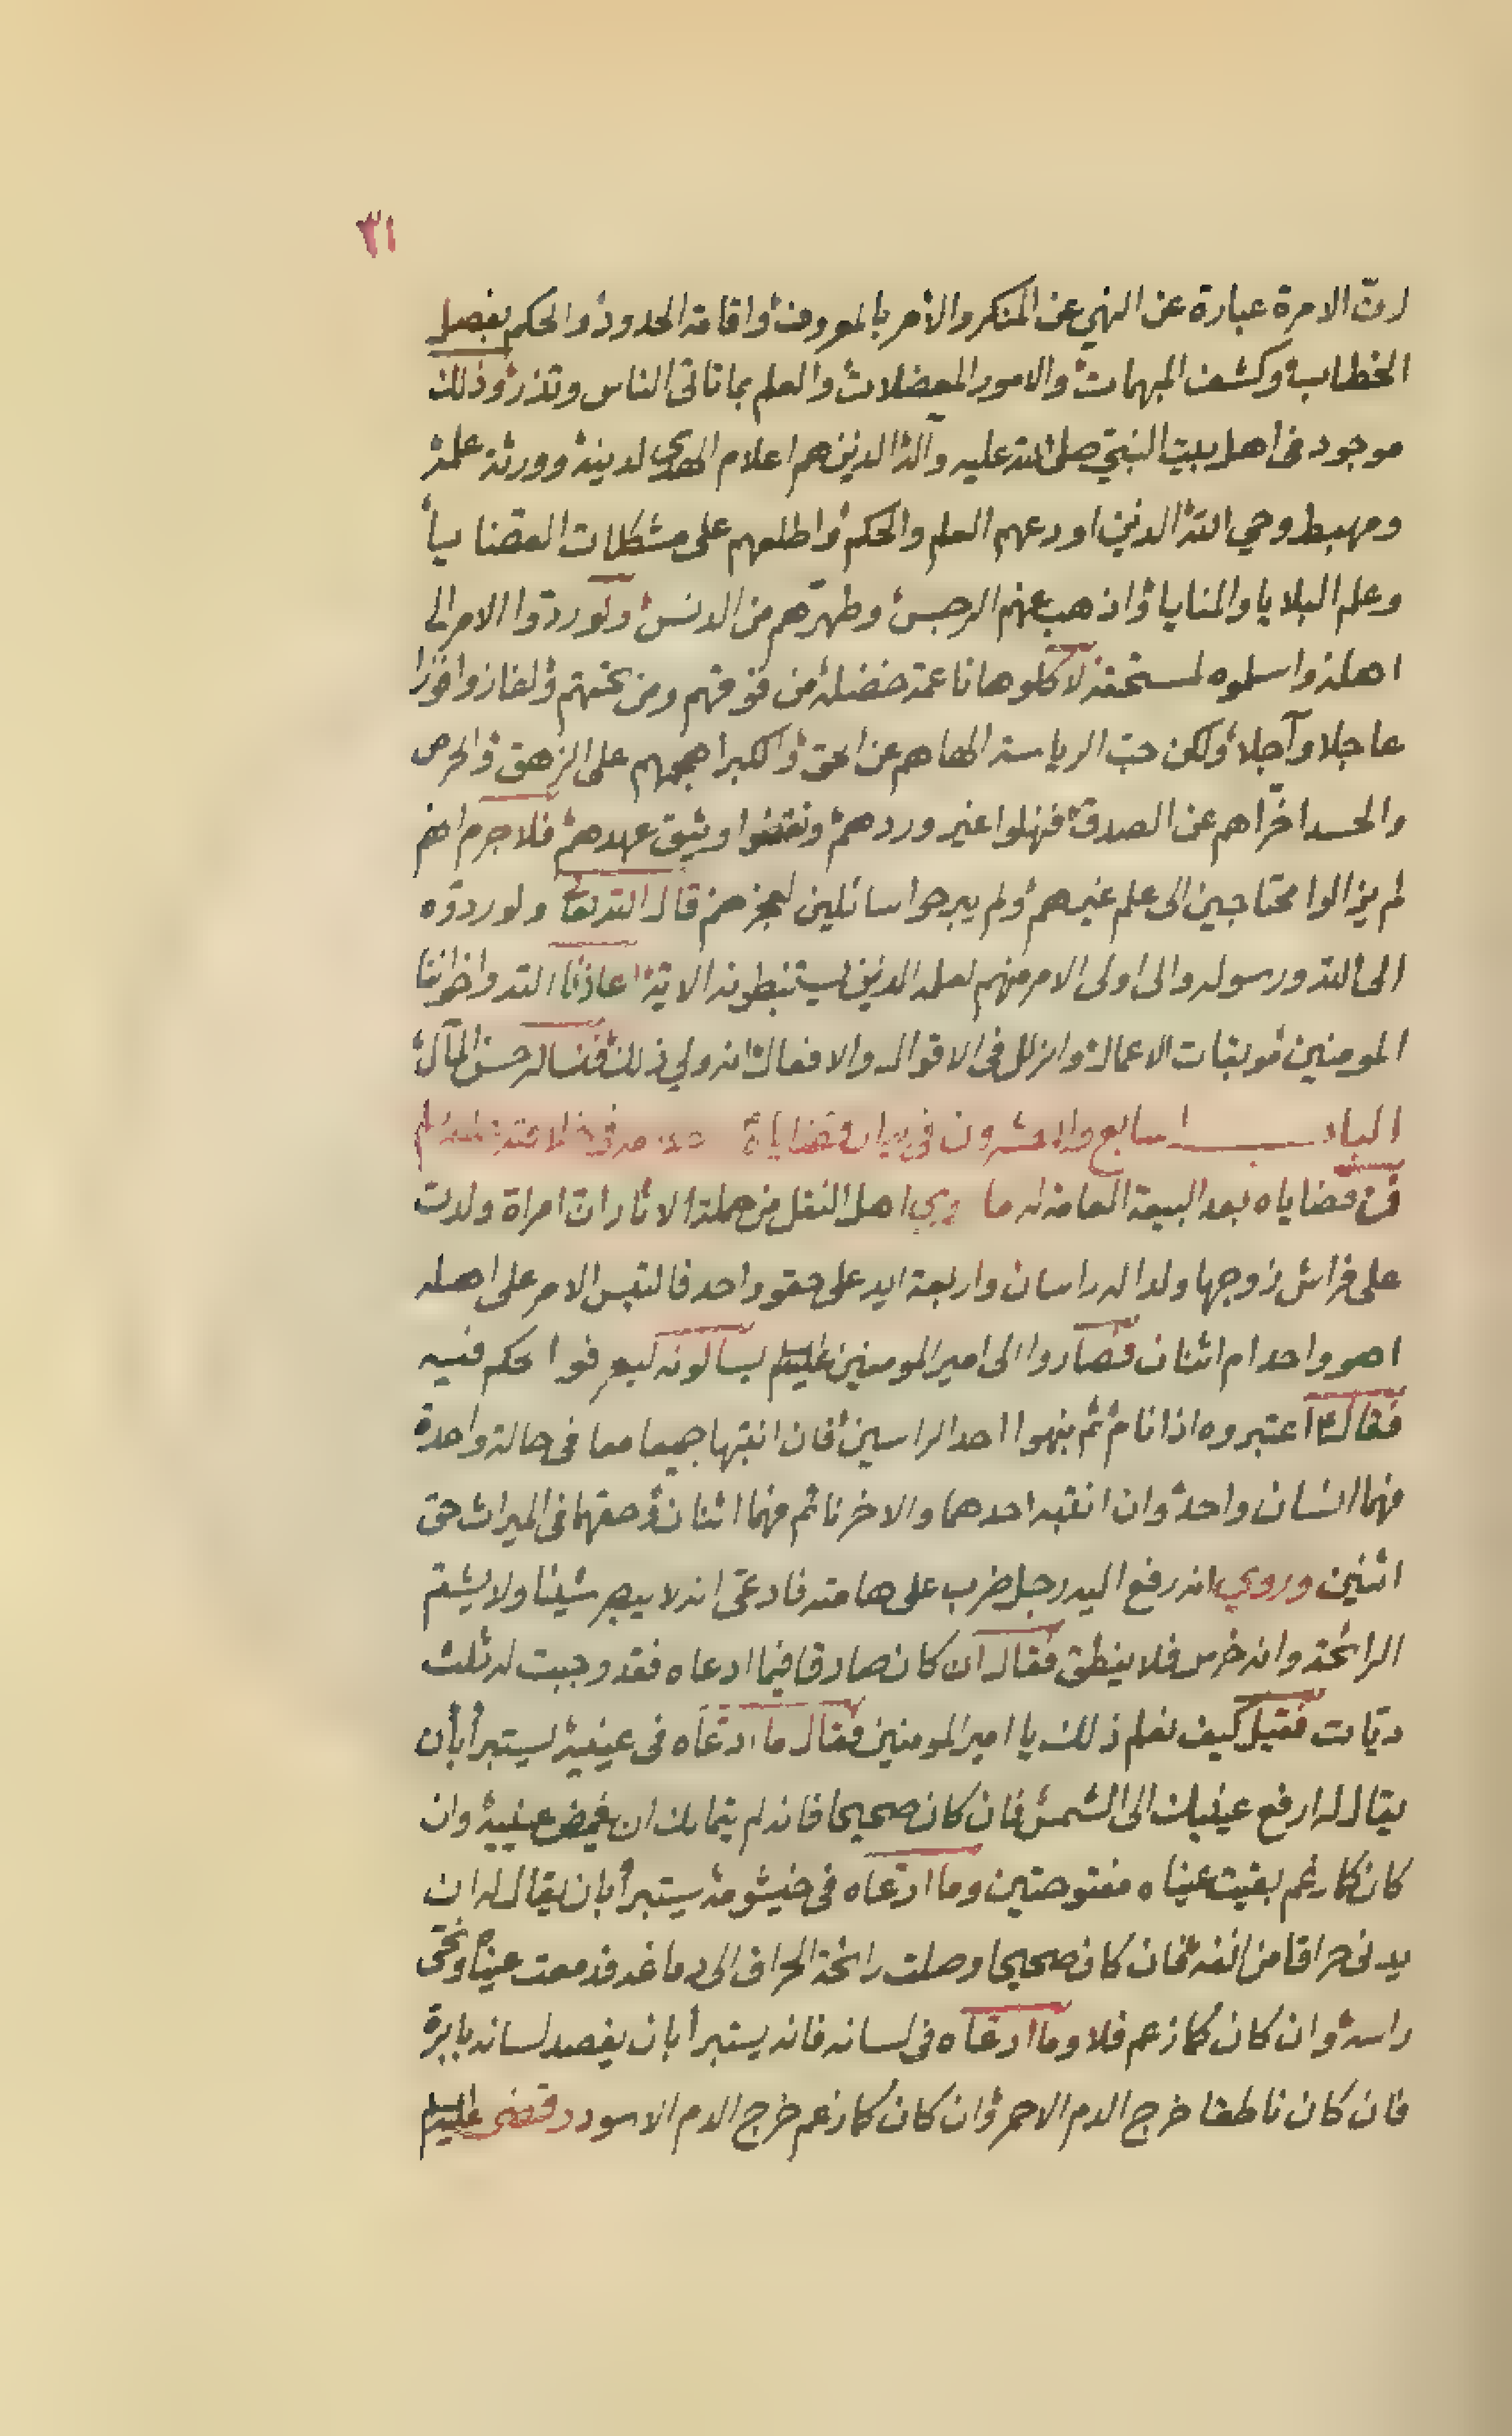 ٣١
لان الامرة عبارة عن النهي عن المنكر والأمر بالمعروف واقامة الحدود والحكم بفصل
الخطاب وكشف المبهمات والامور المعضلات والعلم بما تاتي الناس وتذر وذلك
موجود فى اهل بيت النبيّ صلى الله عليه وآله الذين هم اعلام الهدى لدينه وورثة علمه
ومهبط وحي الله الذين اودعهم العلم والحكم واطلعهم على مشكلات القضايا
وعلم البلايا والمنايا واذهب عنهم الرجس وطهّرهم من الدنس ولو ردّوا الامر الى
اهله واسلموه لمستحقه لاكلوها ناعمة خضلة من فوقهم ومن تحتهم ولفازوا فوزا
عاجلا وآجلا ولكن حبّ الرياسة الهاهم عن الحق والكبر اهجمهم على الزهق والحرص
والحسد اخّراهم عن الصدق فنهلوا غير وردهم ونقضوا وثيق عهدهم فلا جرم انهم
لم يزالوا محتاجين الى علم غيرهم ولم يبرحوا سائلين لعجزهم قال الله تعا ولو ردوه
الى الله ورسوله والى اولى الامر منهم لعلمه الذين يستنبطونه الاية اعاذنا الله واخواننا
المومنين موبقات الاعمال والزلل فى الاقوال والافعال انه ولي ذلك فنساله حسن المآل
الباب السابع والعشرون في بيان قضاياه
فمن قضاياه بعد البيعة العامة له ما روي اهل النقل من حملة الاثار ان امراة ولدت
على فراش زوجها ولدا له راسان واربعة ايد على حقو واحد فالتبس الامر على اهله
اهو واحد ام اثنان فصاروا الى امير المومنين عليه السلم يسالونه ليعرفوا حكم فيه
فقال اعتبروه اذا نام ثم نبهوا احد الراسين فان انتبها جميعا معا فى حالة واحدة
فهما انسان واحد وان انتبه احدهما والاخر نائم فهما اثنان وحقهما فى الميراث حق
اثنين وروي انه رفع اليه رجل ضرب على هامته فادعى انه لا يبصر شيئا ولا يشتم
الرائحة وانه خرس فلا ينطق فقال ان كان صادقا فيما ادعاه فقد وجبت له ثلث
ديّات فقيل كيف نعلم ذلك يا امير المومنين فقال ما ادّعاه فى عينيه يستبرأ بأن
يقال له ارفع عينيك الى الشمس فان كان صحيحا فانه لم يتمالك ان يغمض عينيه وان
كان كما زعم بقيت عيناه مفتوحتين وما ادّعاه فى خيشومه يستبرأ بان يقال له ان
يدنى حراقا من انفه فان كان صحيحا وصلت رائحة الحراق الى دماغه فدمعت عيناه ونحّى
راسه وان كان كما زعم فلا وما ادعاه فى لسانه فانه يستبرأ بان يفصد لسانه بابرة
فان كان ناطقا خرج الدم الاحمر وان كان كما زعم خرج الدم الاسود وقضى عليه السلم